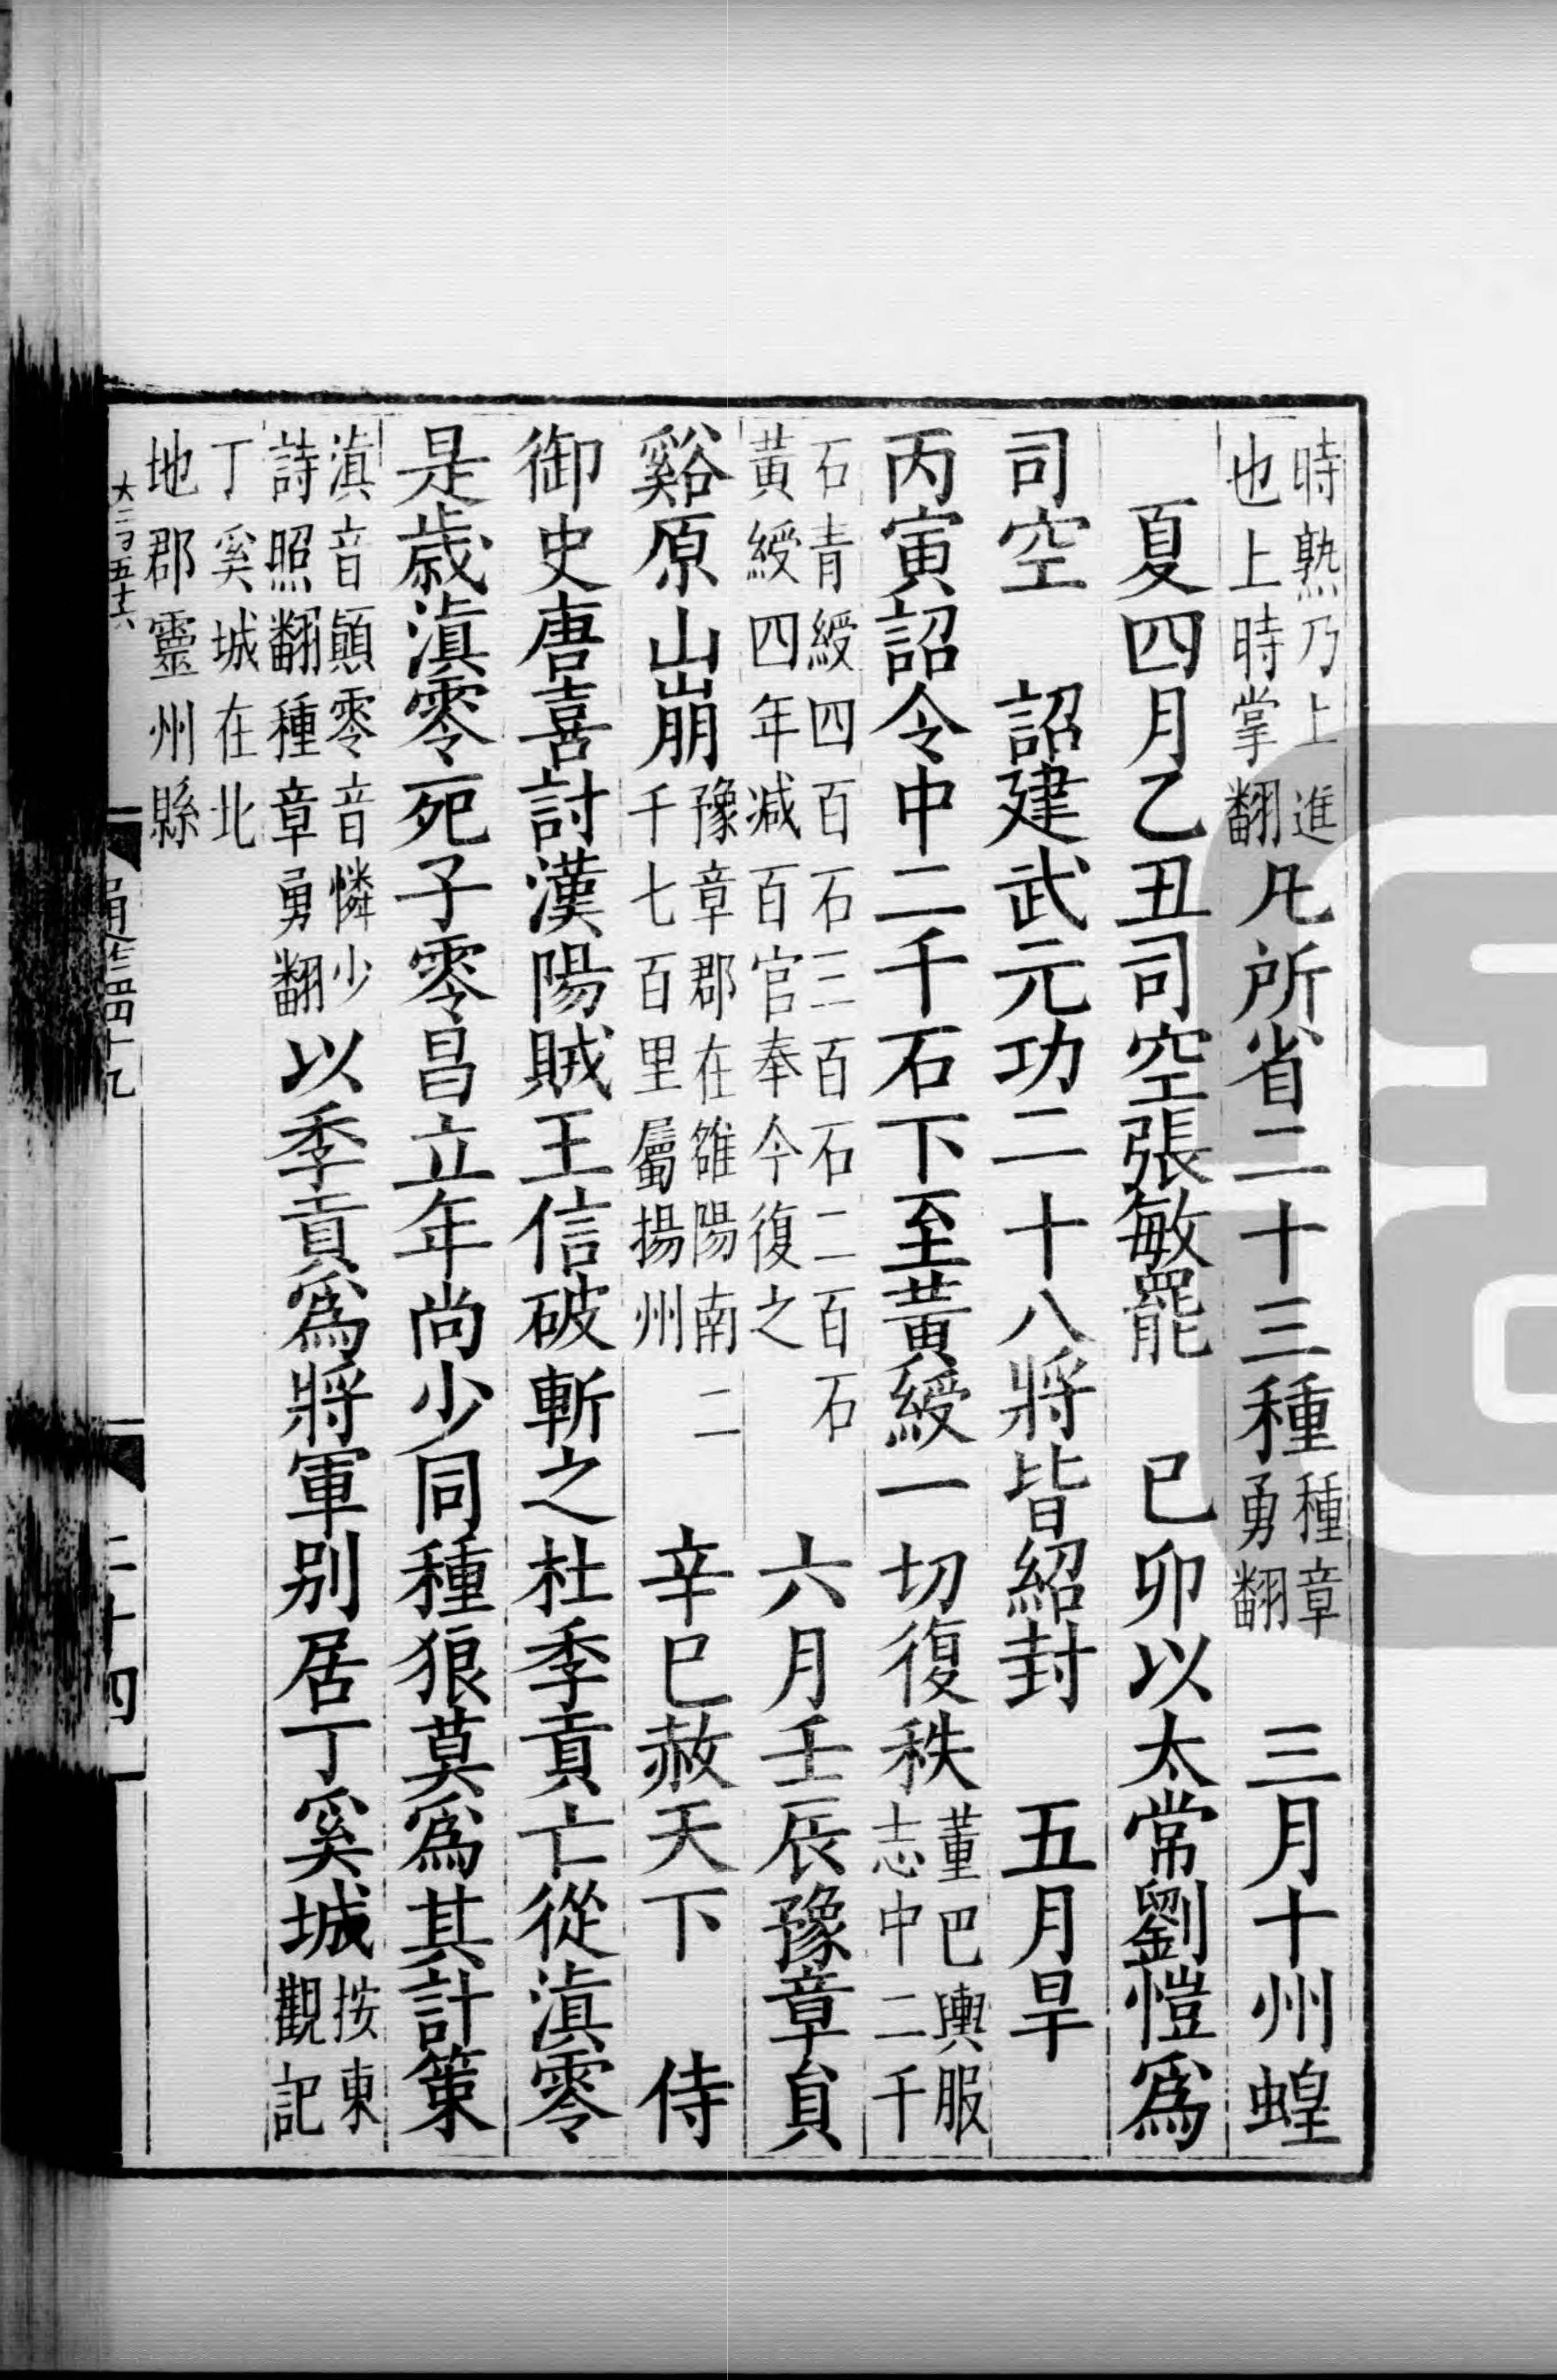 時熟乃上進也上時掌翻凡所省二十三種種章勇翻　三月十州蝗
夏四月乙丑司空張敏罷　已卯以太常劉愷爲
司空　詔建武元功二十八將皆紹封　五月旱
丙寅詔令中二千石下至黃綬一切復秩董巴輿服志中二千
石青綬四百石三百石二百石黃綬四年減百官奉今復之　六月壬辰豫章貟
谿原山崩豫章郡在雒陽南二千七百里屬揚州　辛巳赦天下　侍
御史唐喜討漢陽賊王信破斬之杜季貢亡從滇零
是歲滇零死子零昌立年尚少同種狼莫爲其計策
滇音顚零音憐少詩照翻種章勇翻以季貢爲將軍別居丁奚城按東觀記
丁奚城在北地郡靈州縣
大三百五十六
二十四